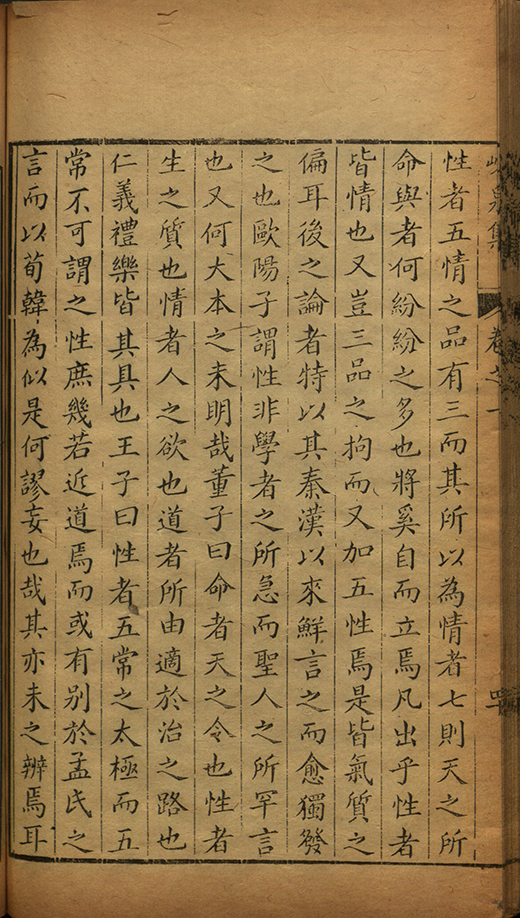 性者五情之品有三而其所以為情者七則天之所
命與者何紛紛之多也將奚自而立焉凡出乎性者
皆情也又豈三品之拘而又加五性焉是皆氣質之
偏耳後之論者特以其秦漢以來鮮言之而愈獨發
之也歐陽子謂性非學者之所急而聖人之所罕言
也又何大本之未明哉董子曰命者天之令也性者
生之質也情者人之欲也道者所由適於治之路也
仁義禮樂皆其具也王子曰性者五常之太極而五
常不可謂之性庶幾若近道焉而或有別於孟氏之
言而以荀韓為似是何謬妄也哉其亦未之辨焉耳